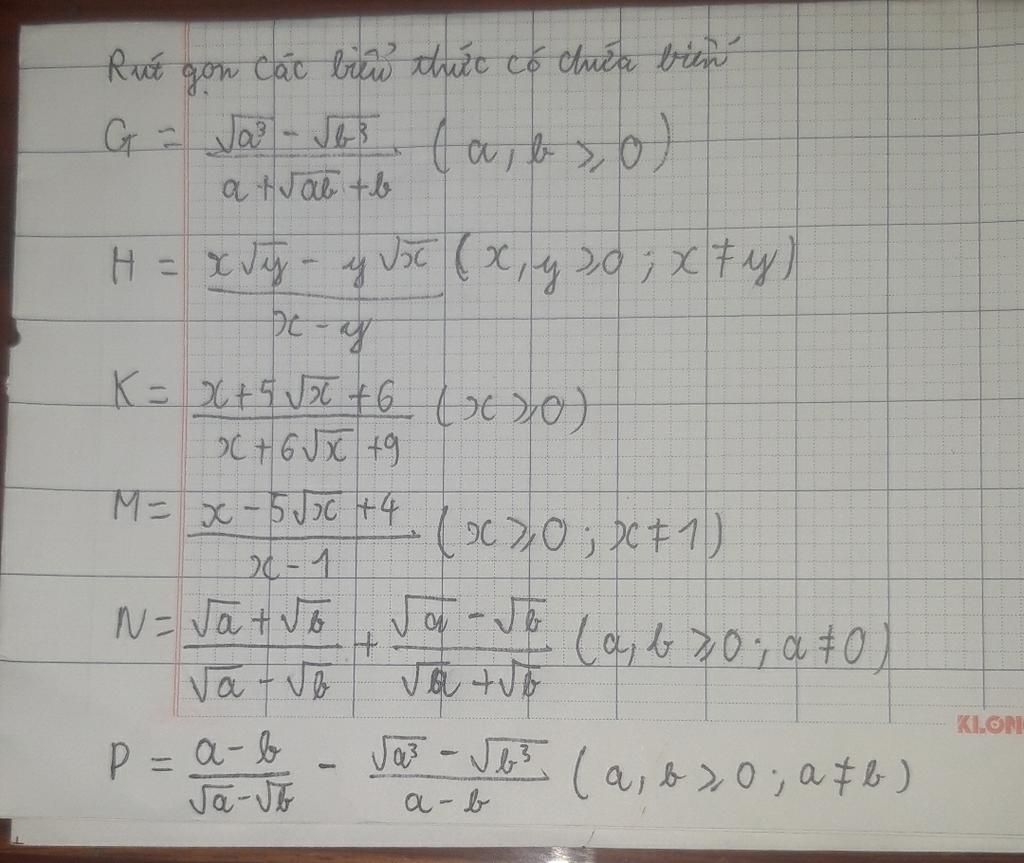 Rút gọn các biểu thức có chứa biến
G = \frac{\sqrt{a^3} - \sqrt{b^3}}{a + \sqrt{ab} + b} (a, b ⩾ 0)
H = \frac{x\sqrt{y} - y\sqrt{x}}{x - y} (x, y ⩾ 0 ; x ≠ y)
K = \frac{x + 5\sqrt{x} + 6}{x + 6\sqrt{x} + 9} (x ⩾ 0)
M = \frac{x - 5\sqrt{x} + 4}{x - 1} (x ⩾ 0 ; x ≠ 1)
N = \frac{\sqrt{a} + \sqrt{b}}{\sqrt{a} - \sqrt{b}} + \frac{\sqrt{a} - \sqrt{b}}{\sqrt{a} + \sqrt{b}} (a, b ⩾ 0 ; a ≠ 0)
KLON
P = \frac{a - b}{\sqrt{a} - \sqrt{b}} - \frac{\sqrt{a^3} - \sqrt{b^3}}{a - b} (a, b ⩾ 0 ; a ≠ b)